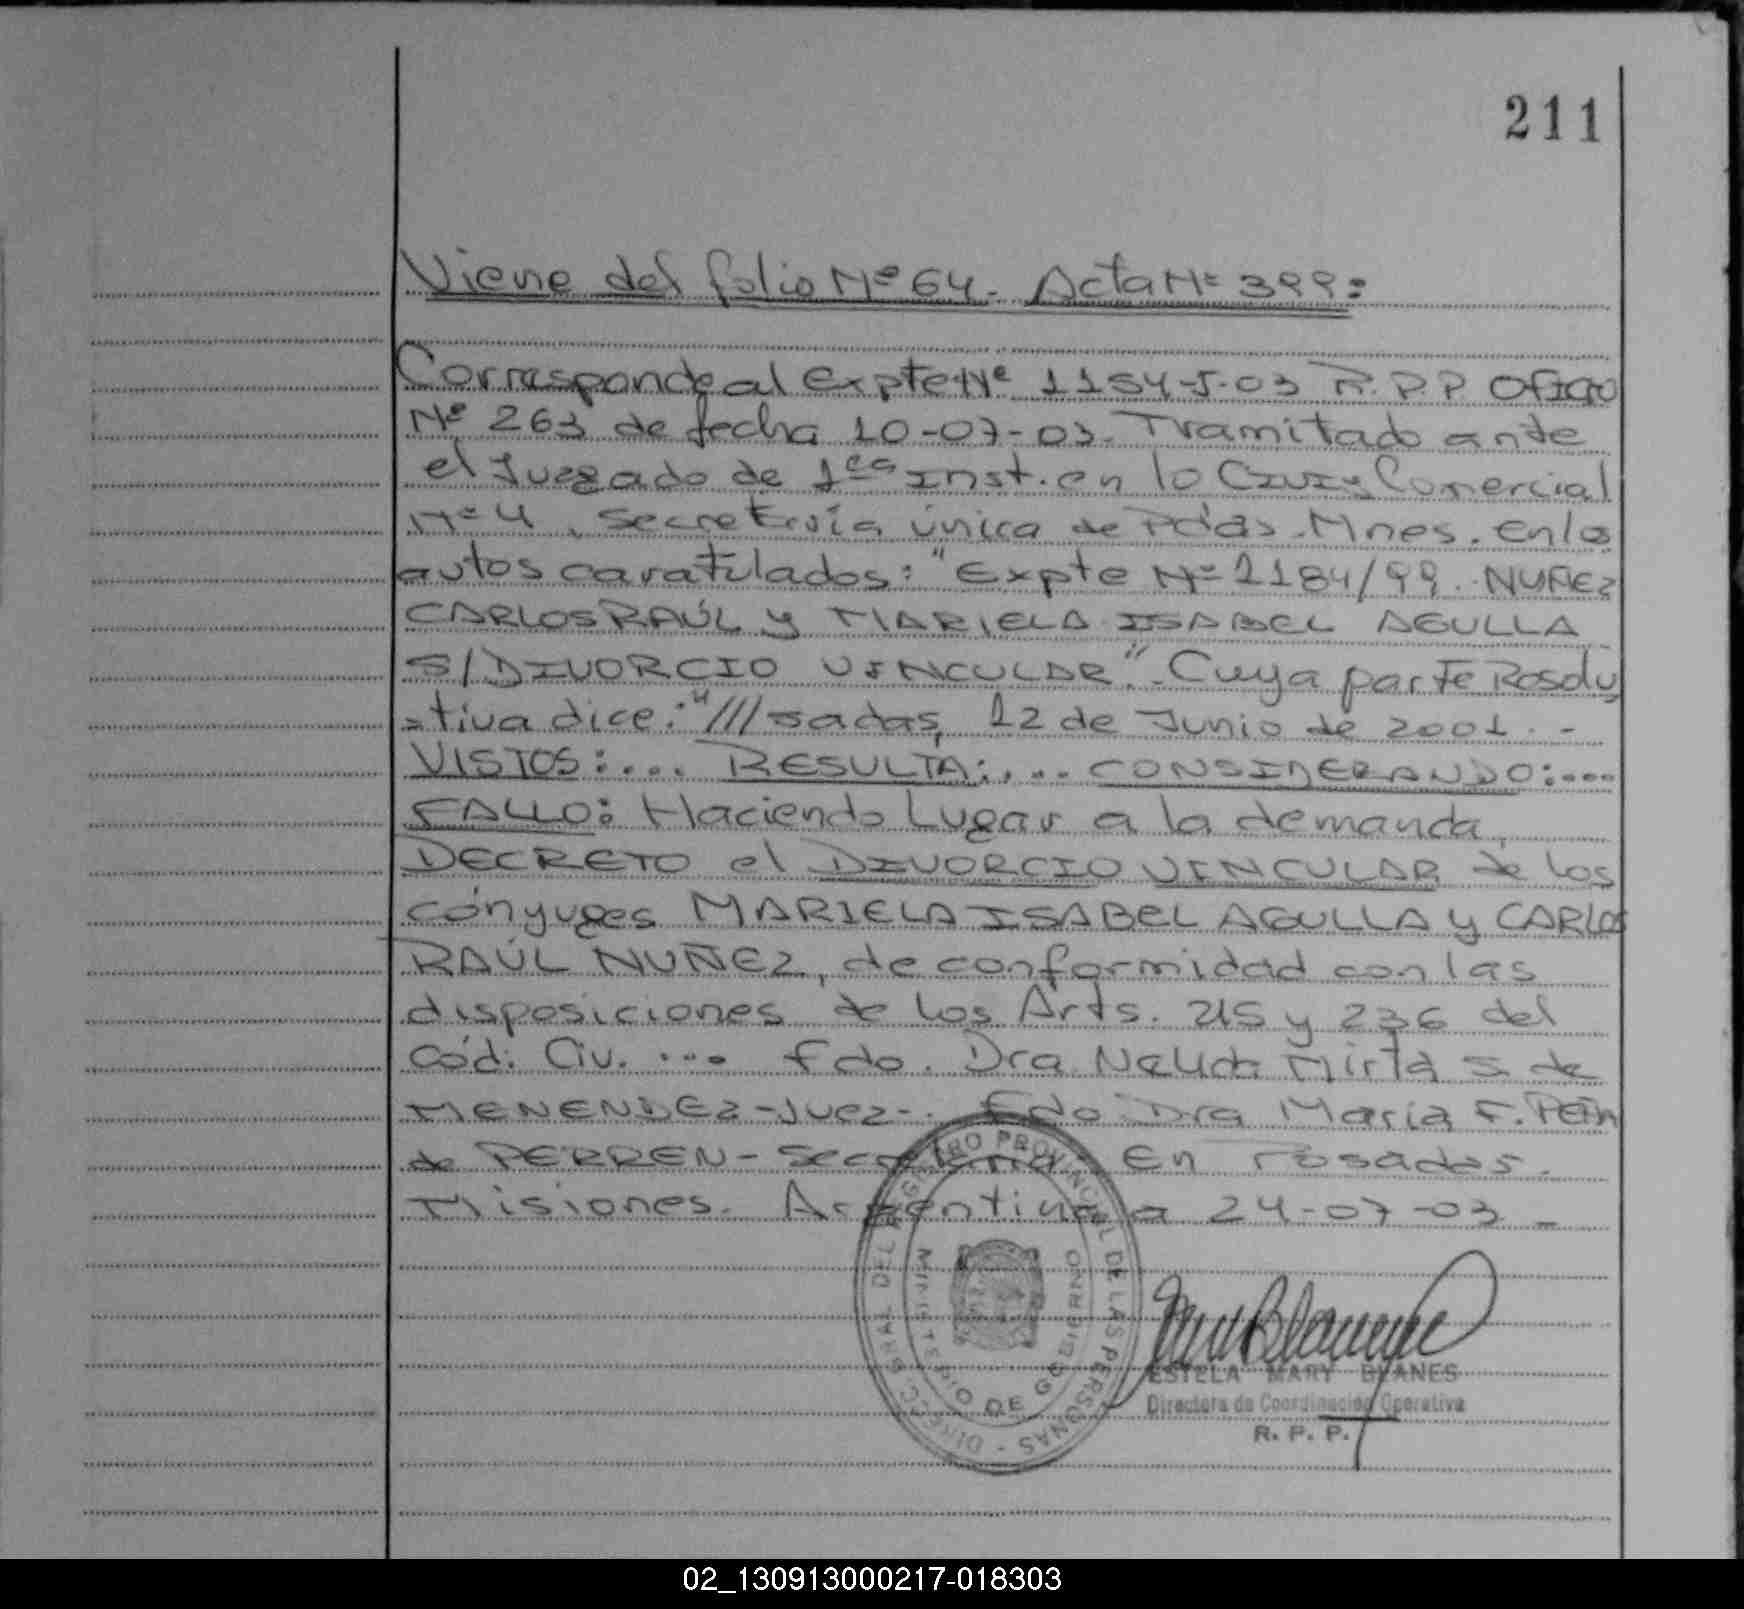 211
Viene del folio Nº 64. Acta Nº 399:
Corresponde al Expte Nº 1154-J-03 R.P.P Oficio
Nº 263 de fecha 10-07-03. Tramitado ante
el Juzgado de 1ra Inst. en lo Civil y Comercial
Nº 4, Secretaría única de Pdas. Mnes. en los
autos caratulados: "Expte Nº 1184/99. NUÑEZ
CARLOS RAÚL y MARIELA ISABEL AGULLA
S/DIVORCIO VINCULAR". Cuya parte Resolu
=tiva dice: "///sadas, 12 de Junio de 2001. -
VISTOS:... RESULTA:... CONSIDERANDO:....
FALLO: Haciendo Lugar a la demanda,
DECRETO el DIVORCIO VINCULAR de los
cónyuges MARIELA ISABEL AGULLA y CARLOS
RAÚL NUÑEZ, de conformidad con las
disposiciones de los Arts. 215 y 236 del
Cód. Civ. ... Fdo. Dra. Mirta S. de
MENENDEZ-Juez-. Fdo Dra María F.
de PERREN - Secretaria. En Posadas.
Misiones. Argentina a 24-07-03 -
DIRECC. GRAL. DEL REGISTRO PROVINCIAL DE LAS PERSONAS -
MINISTERIO DE GOBIERNO
ESTELA MARY BLANES
Directora de Coordinación Operativa
R. P. P.
02_130913000217-018303